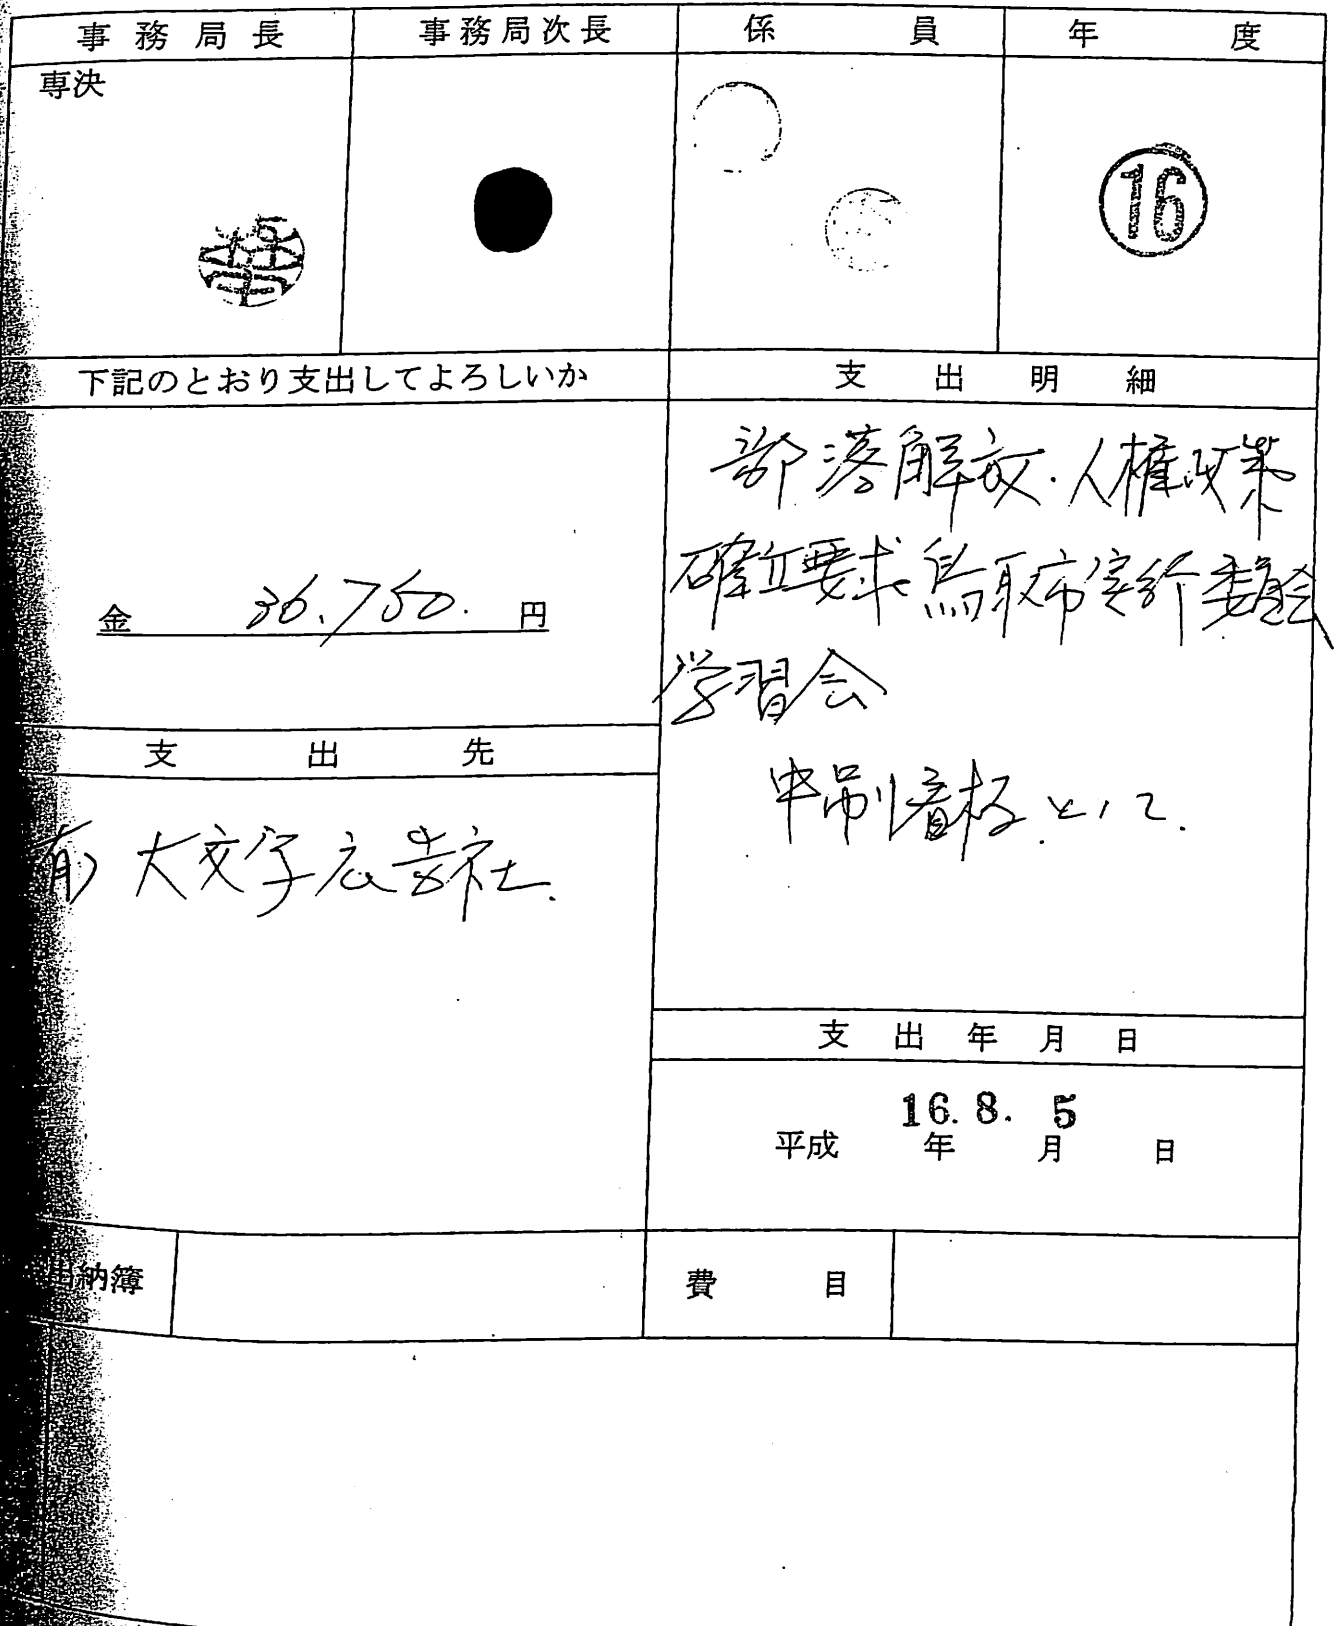 事務局長 事務局次長 係員 年度
専決
16
下記のとおり支出してよろしいか
金 36,750. 円
支出先
有) 大文字広告社.
支出明細
部落解放・人権政策
確立要求鳥取市実行委員会
学習会
中吊り看板として.
支出年月日
16. 8. 5
平成 年 月 日
出納簿
費目